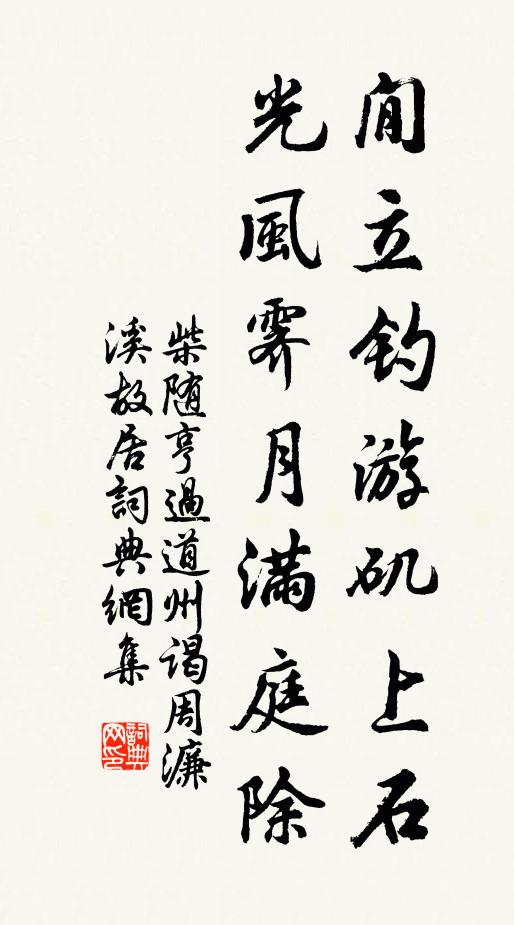 閒立钓游矶上石
光風霽月満庭除
柴随亨過道州谒周濂
溪故居詞典網集
詞典网印